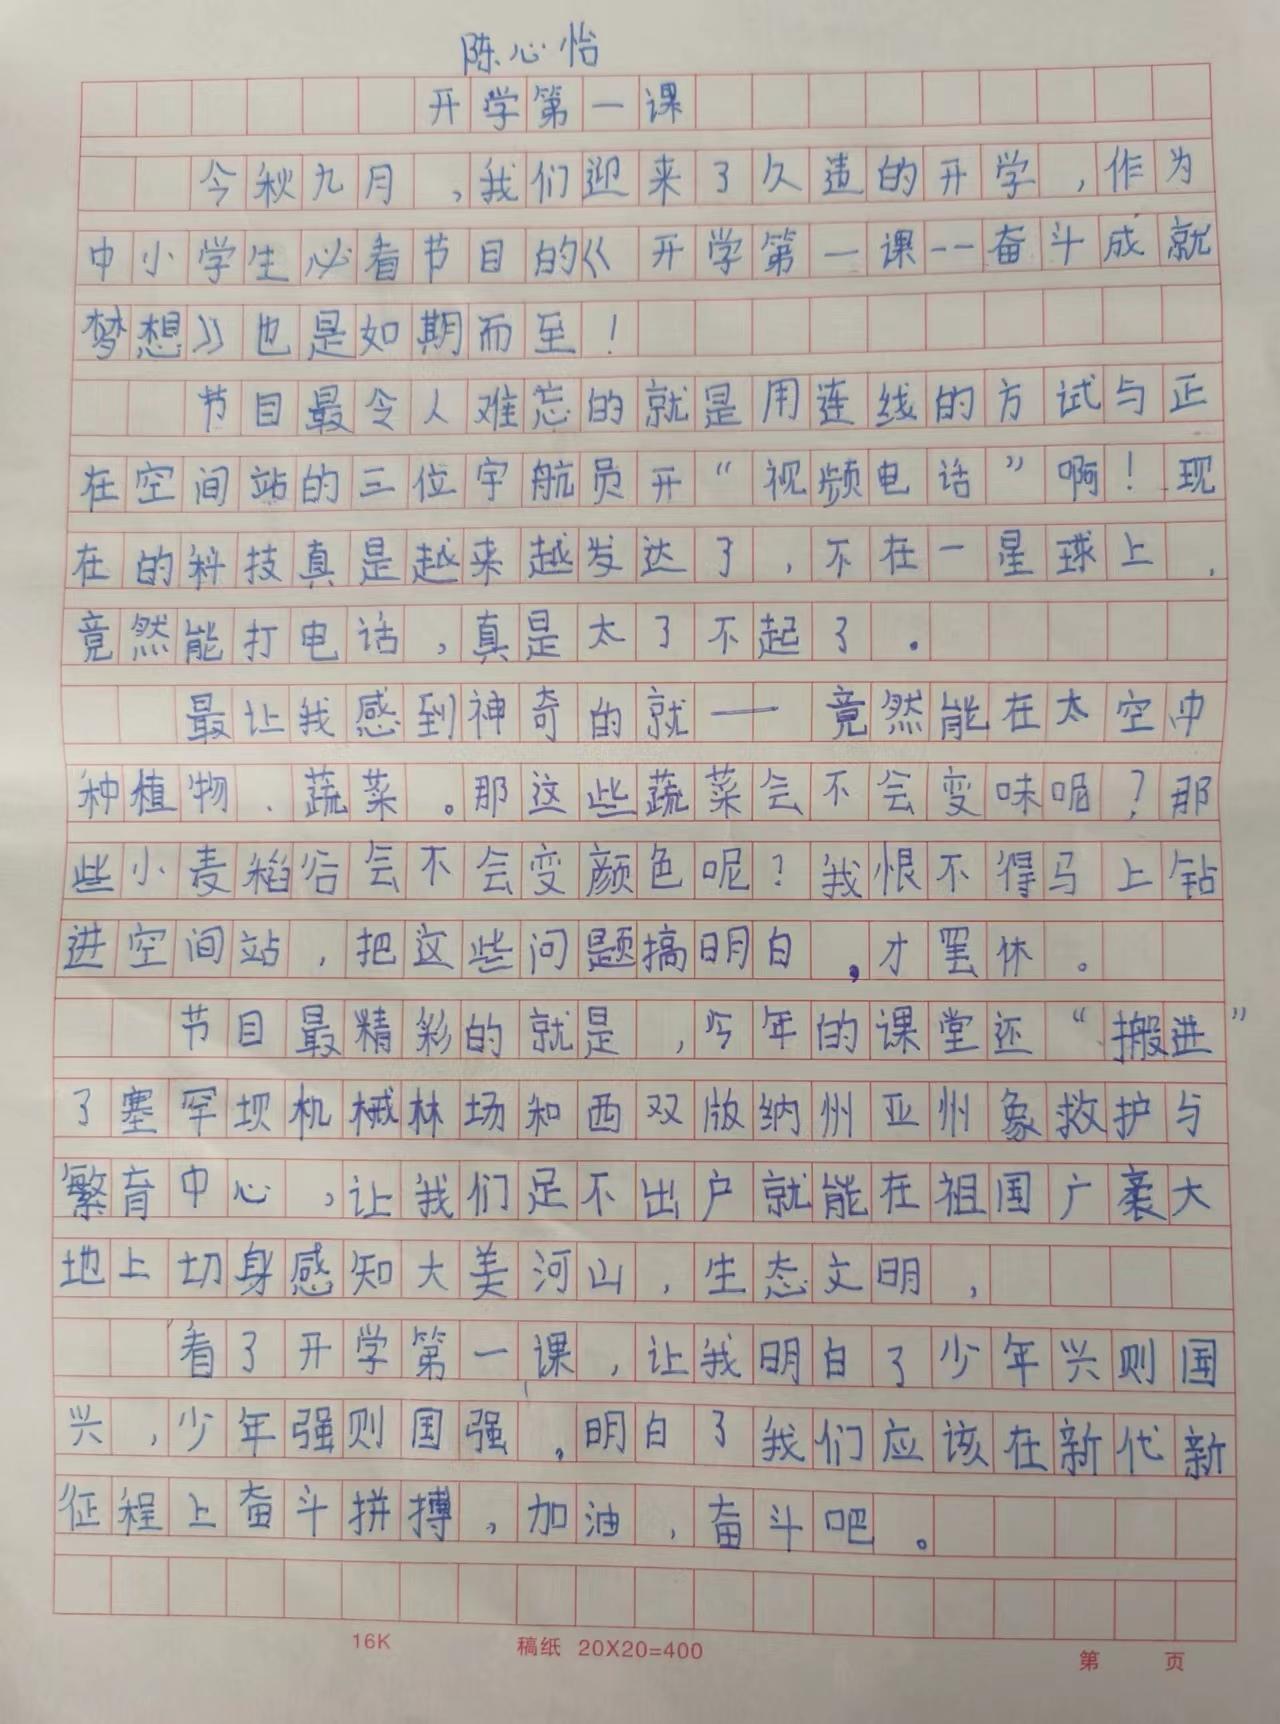 陈心怡
开学第一课
今秋九月,我们迎来了久违的开学,作为
中小学生必看节目的《开学第一课--奋斗成就
梦想》也是如期而至!
节目最令人难忘的就是用连线的方试与正
在空间站的三位宇航员开“视频电话”啊!现
在的科技真是越来越发达了,不在一星球上,
竟然能打电话,真是太了不起了。
最让我感到神奇的就——竟然能在太空中
种植物、蔬菜。那这些蔬菜会不会变味呢?那
些小麦稻谷会不会变颜色呢?我恨不得马上钻
进空间站,把这些问题搞明白,才罢休。
节目最精彩的就是,今年的课堂还“搬进”
了塞罕坝机械林场和西双版纳州亚州象救护与
繁育中心,让我们足不出户就能在祖国广袤大
地上切身感知大美河山,生态文明,
看了开学第一课,让我明白了少年兴则国
兴,少年强则国强。明白了我们应该在新代新
征程上奋斗拼搏,加油,奋斗吧。
16K 稿纸 20X20=400 第 页